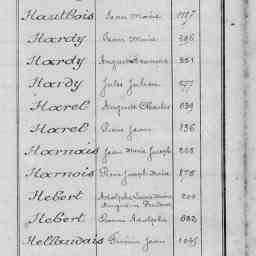 Hautbois Jean Marie 1117
Hardy Jean Marie 395
Hardy Auguste 351
Hardy Jules Julien 277
Harel Auguste Charles 639
Harel Pierre Jean 836
Harnais Jean Marie Joseph 208
Harnois Pierre Joseph Marie 878
Hebert Adolphe Louis Marie 200
Augustin
Hebert Adolphe 682
Hellaudais Firmin Jean 1045